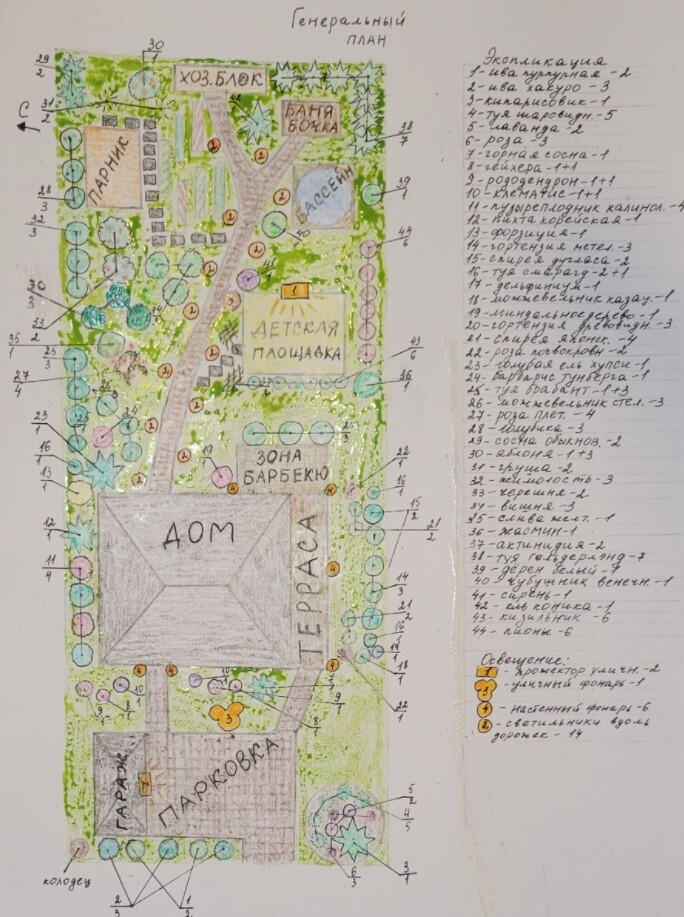 Генеральный
план
Экспликация
1- ива пурпурная - 2
2- ива хакуро - 3
3- кипарисовик - 1
4- туя шаровидн. - 5
5- лаванда - 2
6- роза - 3
7- горная сосна - 1
8- гейхера - 1+1
9- рододендрон - 1+1
10- клематис - 1+1
11- пузыреплодник калинол. - 4
12- пихта корейская - 1
13- форзиция - 1
14- гортензия метел. - 3
15- спирея дугласа - 2
16- туя смарагд - 2+1
17- дельфиниум - 1
18- можжевельник казац. - 1
19- миндальное дерево - 1
20- гортензия древовидн. - 3
21- спирея японск. - 4
22- роза почвокровн - 2
23- голубая ель хупси - 1
24- барбарис тунберга - 1
25- туя брабант - 1+3
26- можжевельник стел. - 3
27- роза плет. - 4
28- голубика - 3
29- сосна обыкнов. - 2
30- яблоня - 1+3
31- груша - 2
32- жимолость - 3
33- черешня - 2
34- вишня - 3
35- слива желт. - 1
36- жасмин - 1
37- актинидия - 2
38- туя гольдерлэнд - 7
39- дерен белый - 1
40- чубушник венечн. - 1
41- сирень - 1
42- ель коника - 1
43- кизильник - 6
44- пионы - 6
Освещение:
1 - прожектор уличн. - 2
3 - уличный фонарь - 1
4 - настенный фонарь - 6
2 - светильники вдоль
дорожек - 14
С
ХОЗ. БЛОК
БАНЯ
БОЧКА
ПАРНИК
БАССЕЙН
ДЕТСКАЯ
ПЛОЩАДКА
ЗОНА
БАРБЕКЮ
ДОМ
ТЕРРАСА
ГАРАЖ
ПАРКОВКА
колодец